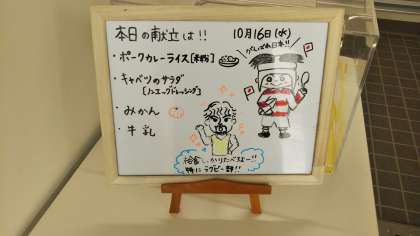 本日の献立は!!
10月16日(水)
がんばれ日本!!
・ポークカレーライス[麦ごはん]
・キャベツのサラダ
[ノンエッグドレッシング]
・みかん
・牛乳
給食しっかりたべるよー!!
特にラグビー部!!